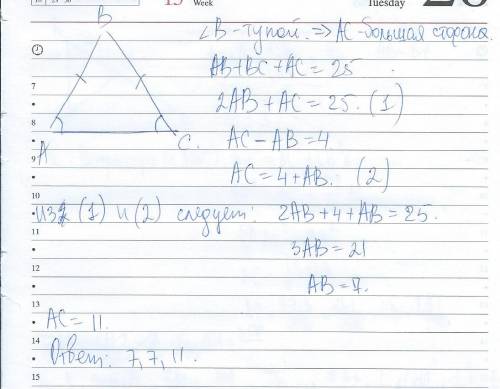 15 Week Tuesday 28
B
∠B - тупой. => AC - большая сторона.
AB + BC + AC = 25
7
2AB + AC = 25. (1)
8
AC - AB = 4
A C.
9
AC = 4 + AB. (2)
10
из (1) и (2) следует: 2AB + 4 + AB = 25.
11
3AB = 21
12
AB = 7.
13
AC = 11.
14
Ответ: 7, 7, 11.
15